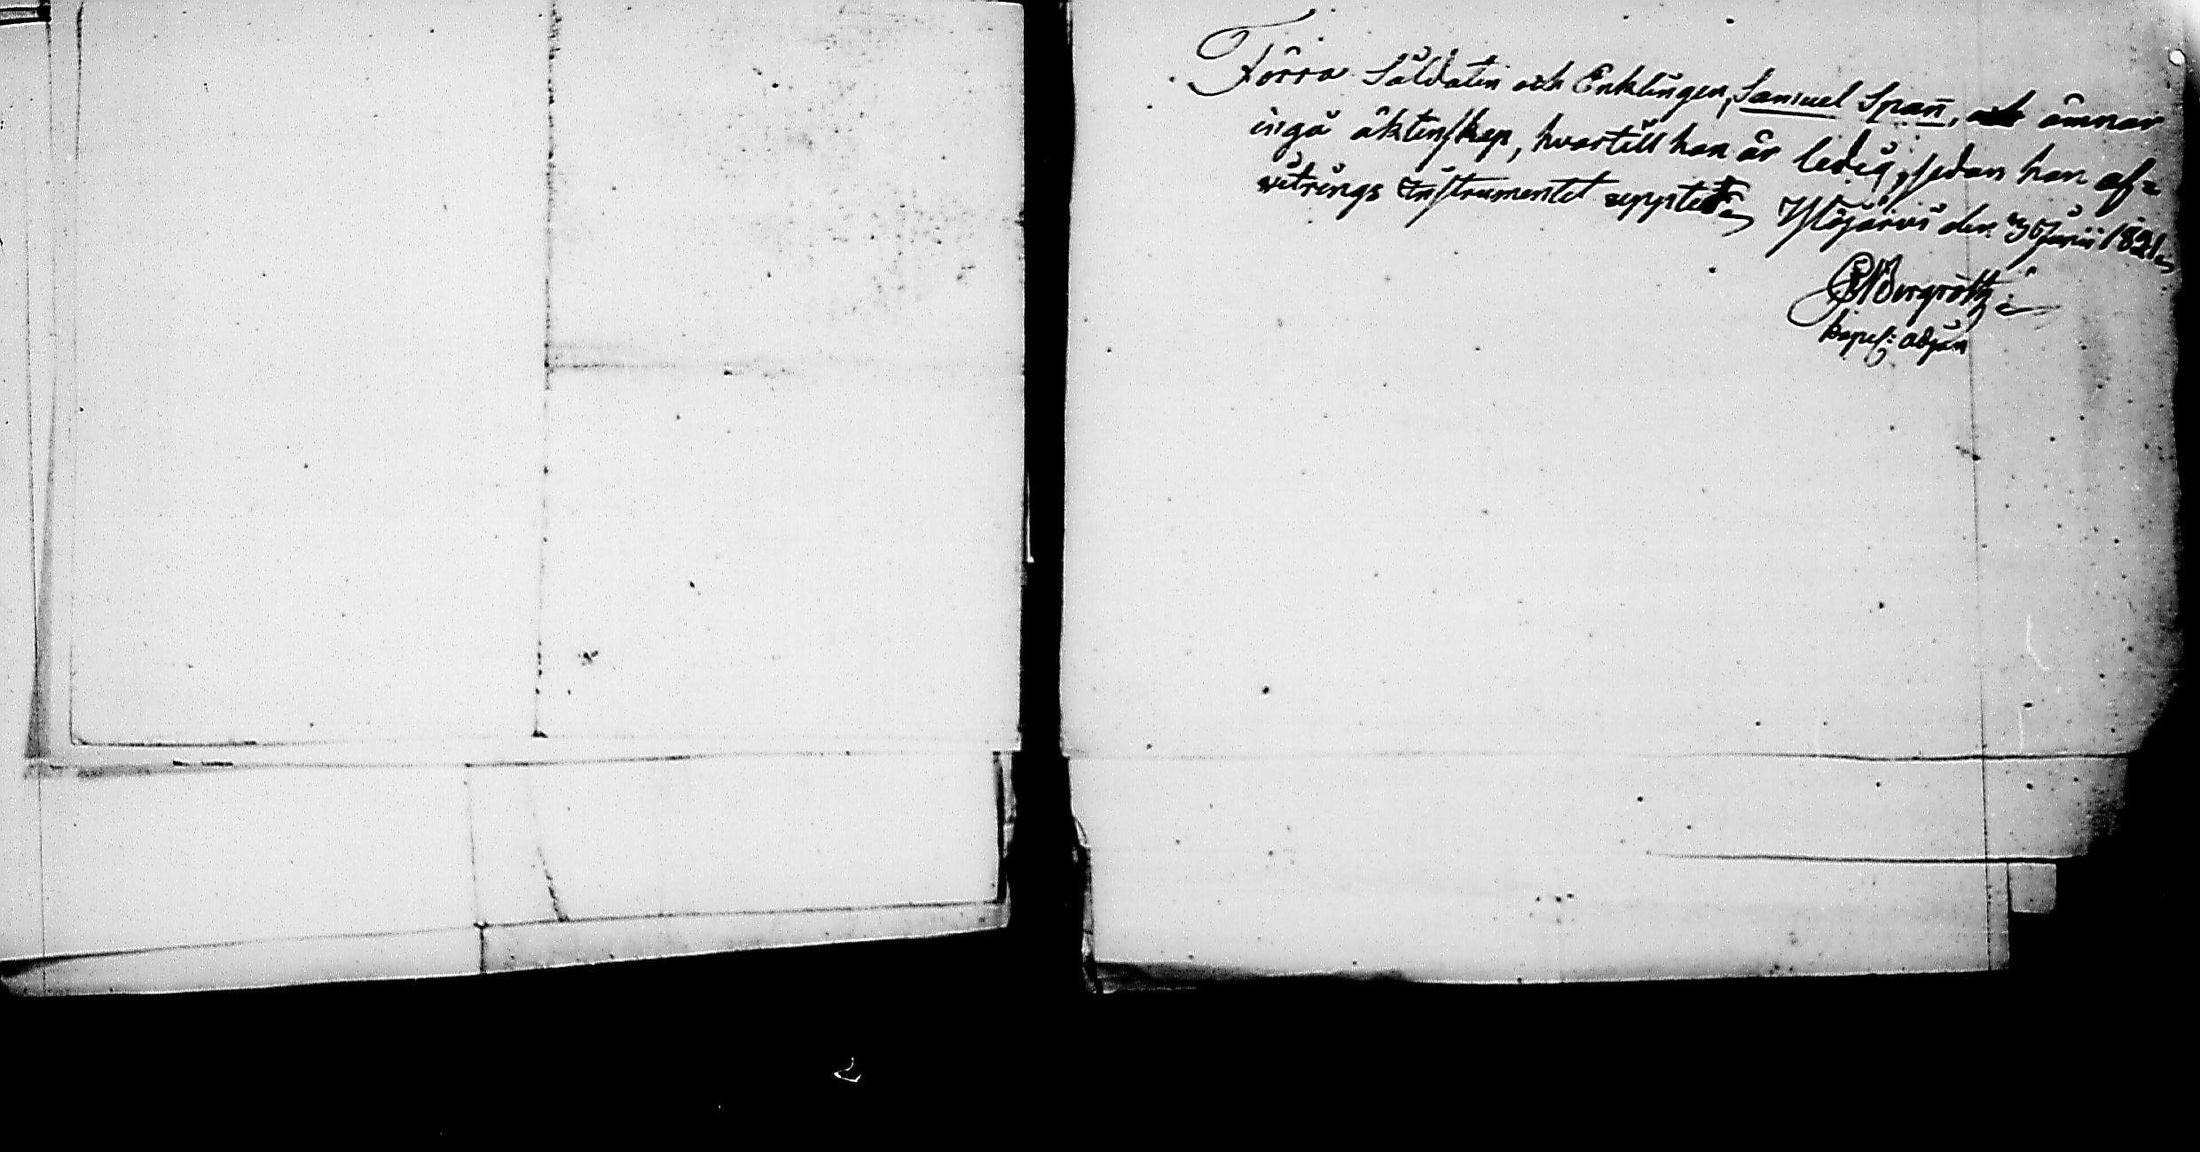 Förra Soldaten och Enklingen, Samuel Spañ, ämnar
ingå äktenskap, hvartill han är ledig, sedan han af=
witrings Instrumentet uppte Ylöjärvi den Junii 1821
Bergroth
kapel: adj: